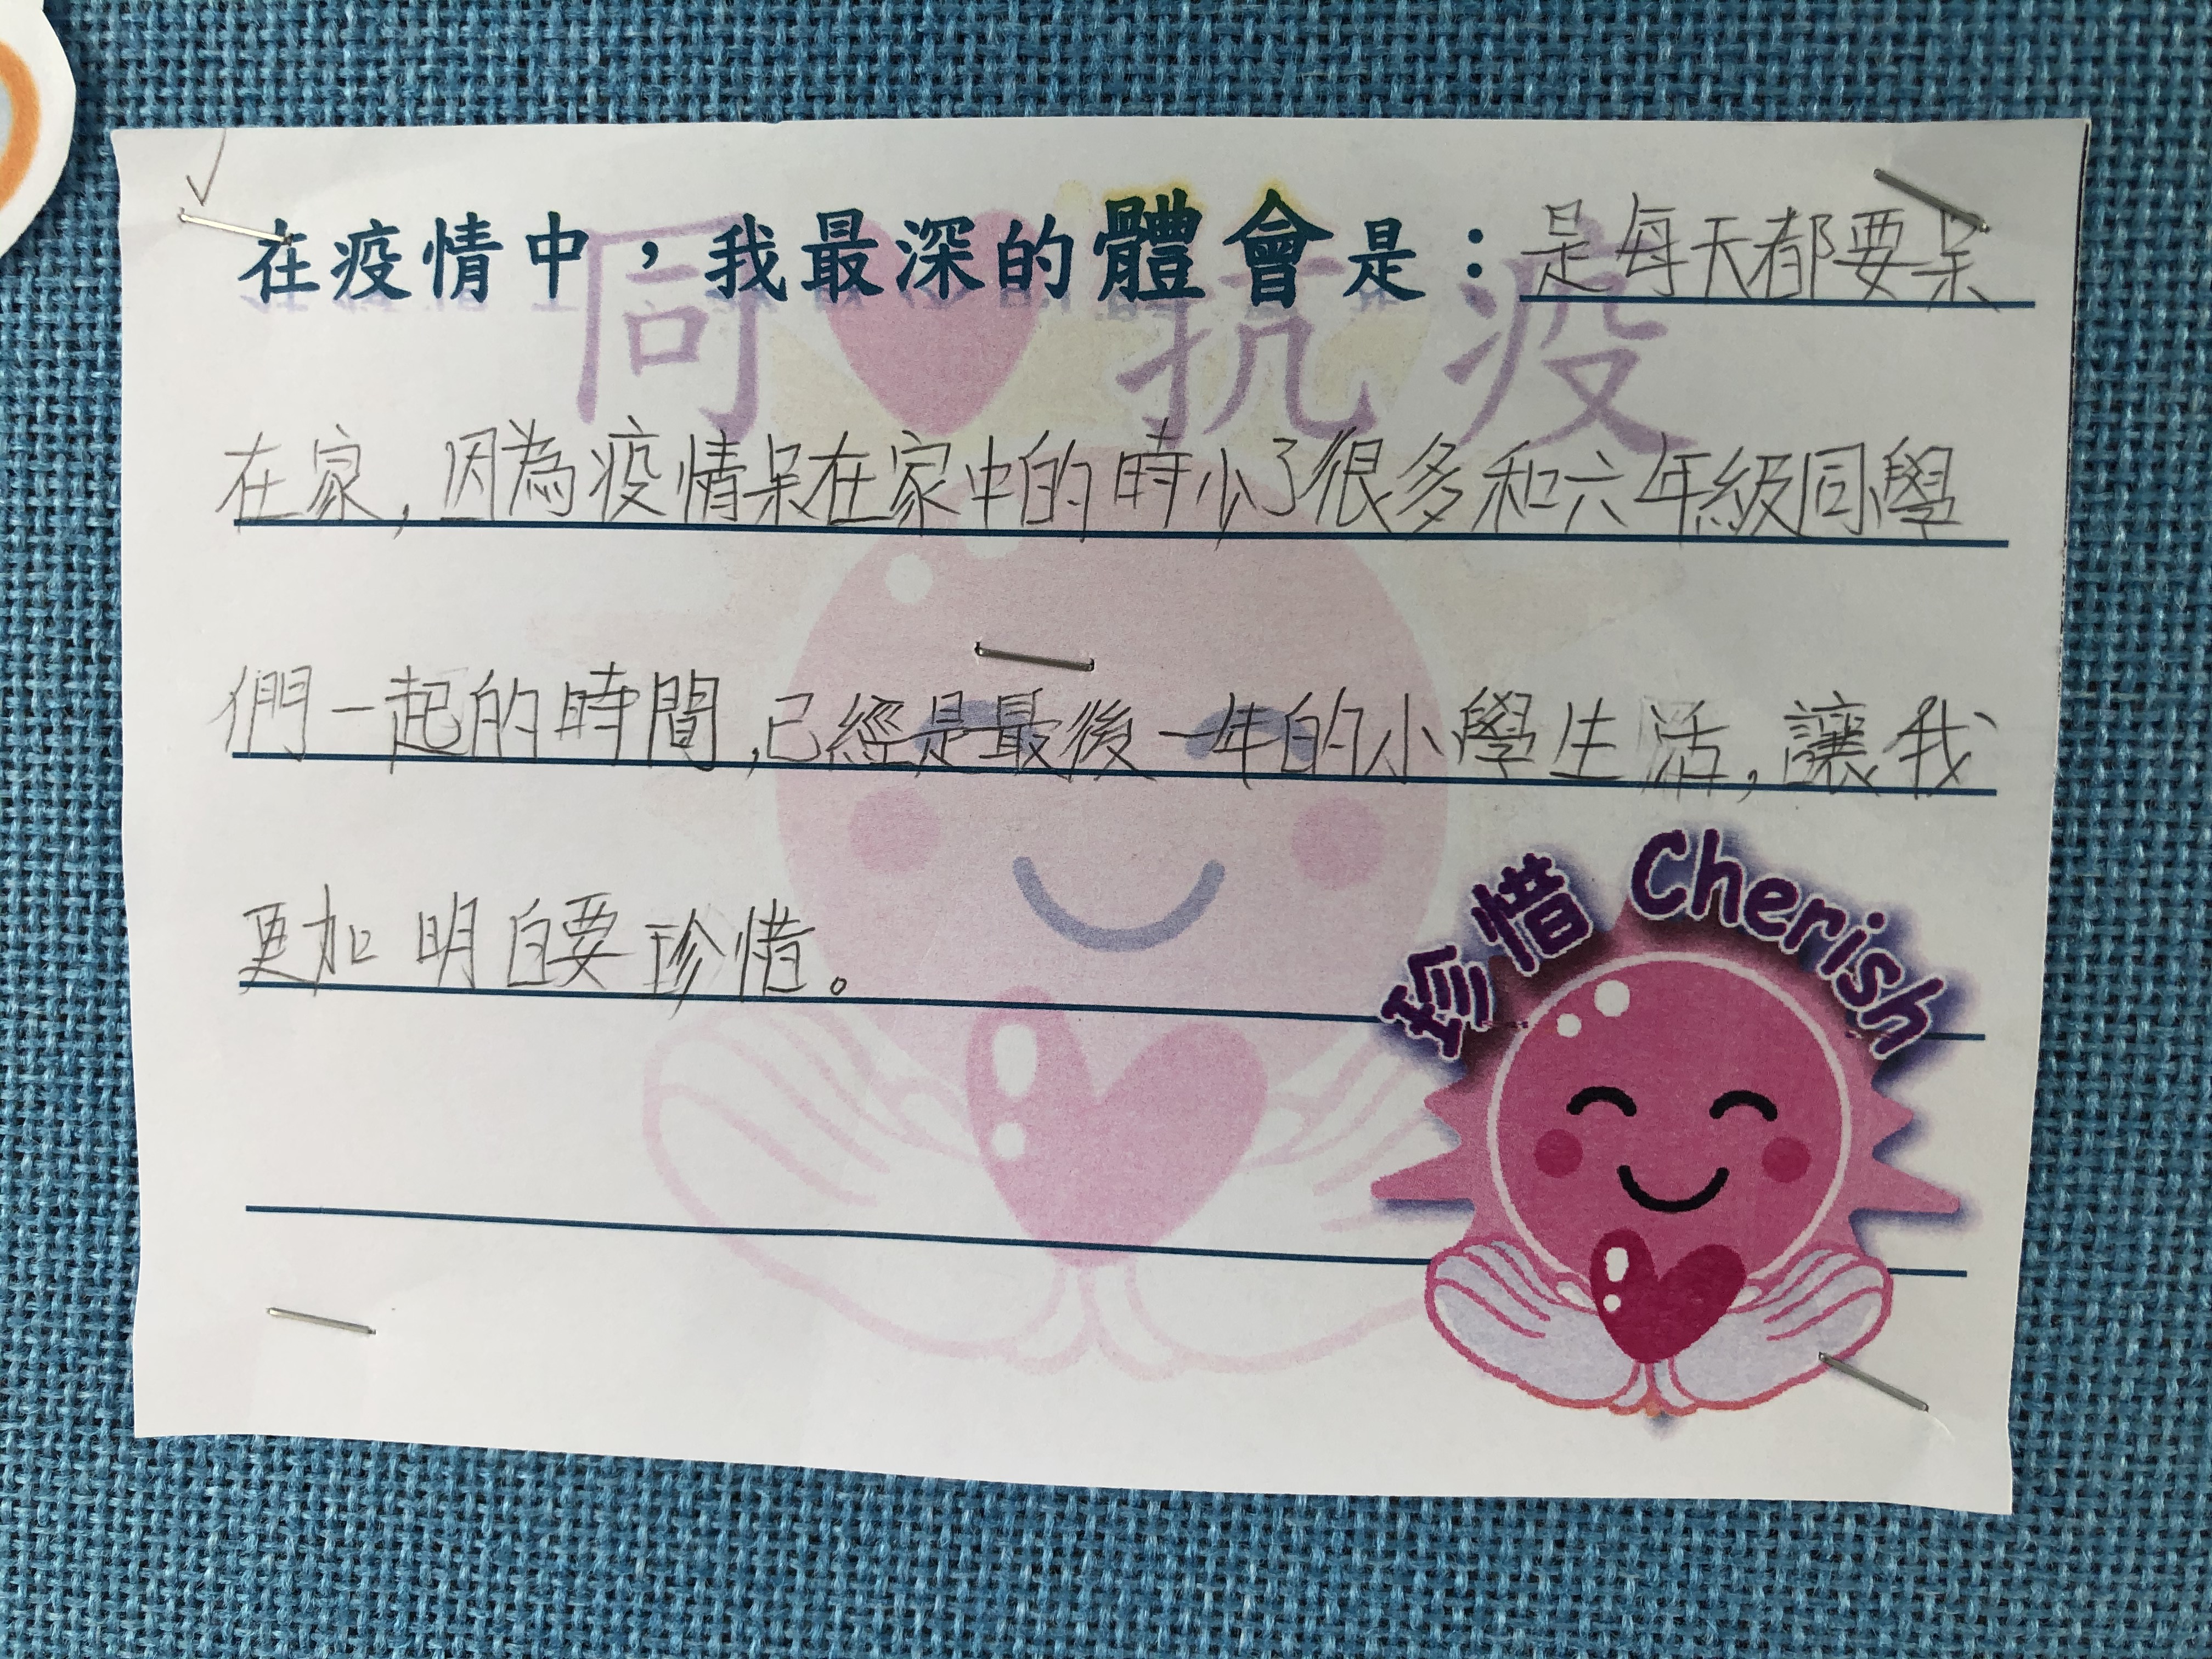 在疫情中，我最深的體會是：是每天都要呆
同 抗疫
在家，因為疫情呆在家中的時小了很多和六年級同學
們一起的時間，己經是最後一年的小學生活，讓我
更加明白要珍惜。
珍惜 Cherish